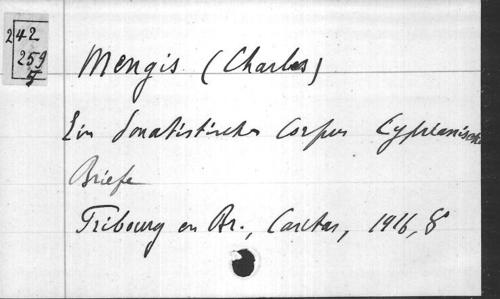 242
259
5
Mengis (Charles)
Ein donatistisches Corpus Cyprianische
Briefe
Fribourg en Br., Caritas, 1916, 8°